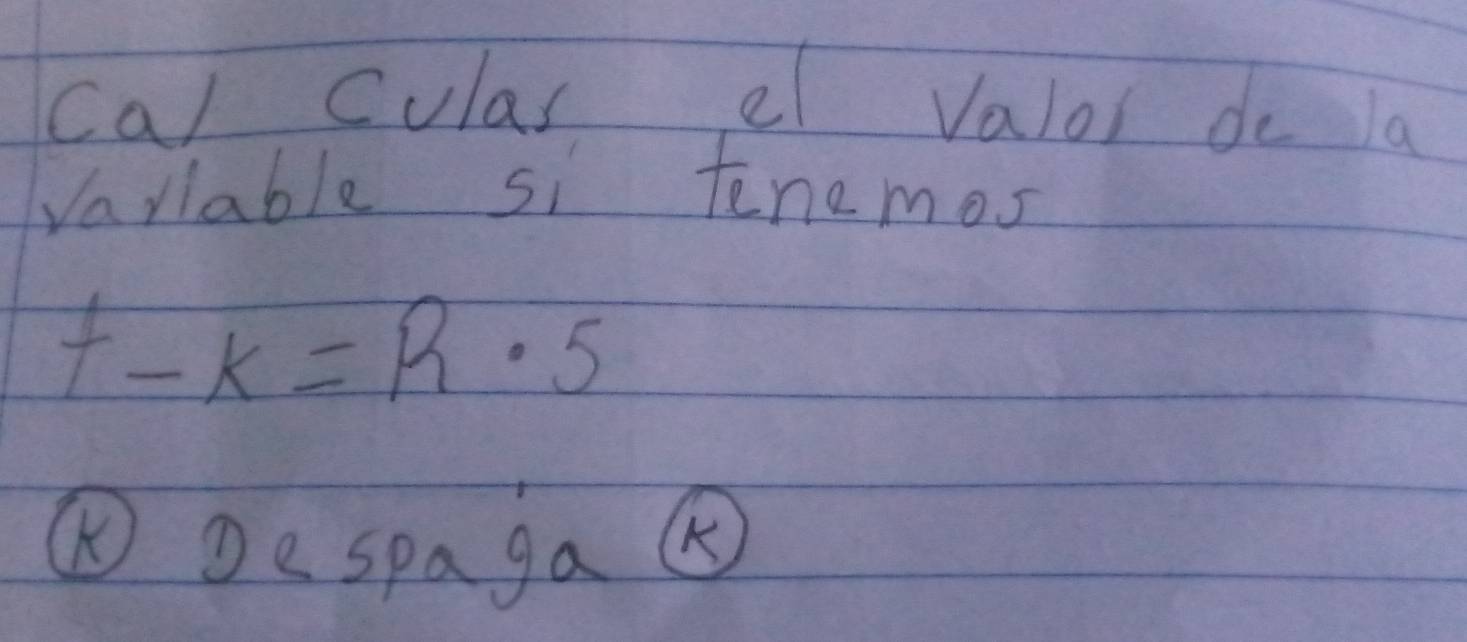 Cal Cular el Valor de la
Variable si tenemos
t - k = R · 5
K Despaja K